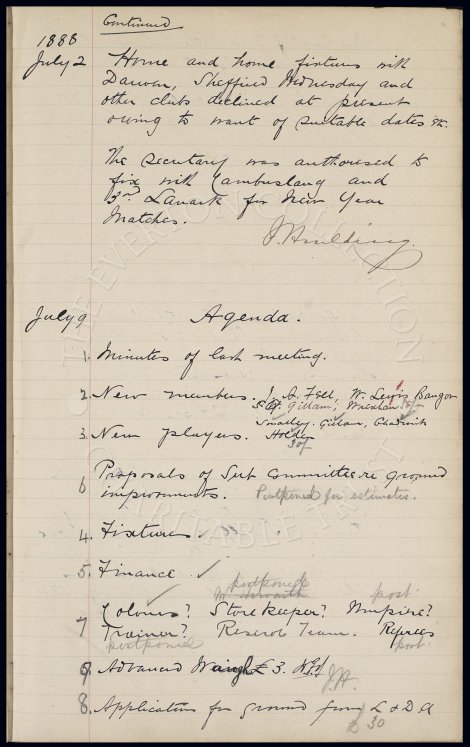 Continued
1888
July 2 Home and home fixtures with
Darwen, Sheffield Wednesday and
other clubs declined at present
owing to want of suitable dates &c.
The secretary was authorised to
fix with Cambuslang and
3rd Lanark for New Year
Matches.
J. Houlding.
July 9 Agenda.
1. Minutes of last meeting.
2. New members. J. A. W. Lewis Bangor
Gillam, Wrexham 30/-
Smalley. Gillam, Chadwick
3. New players. Holden
30/-
6 Proposals of Sub Committee re ground
improvments. Postponed for estimates.
4. Fixtures.
5. Finance ✓
postponed
Colours? Storekeeper? Umpire? post.
7 Trainer? Reserve Team. Referees
postponed post.
9. Advanced £3.
J.H.
8. Application for ground from L & D A
£30
THE EVERTON COLLECTION
CHARITABLE TRUST